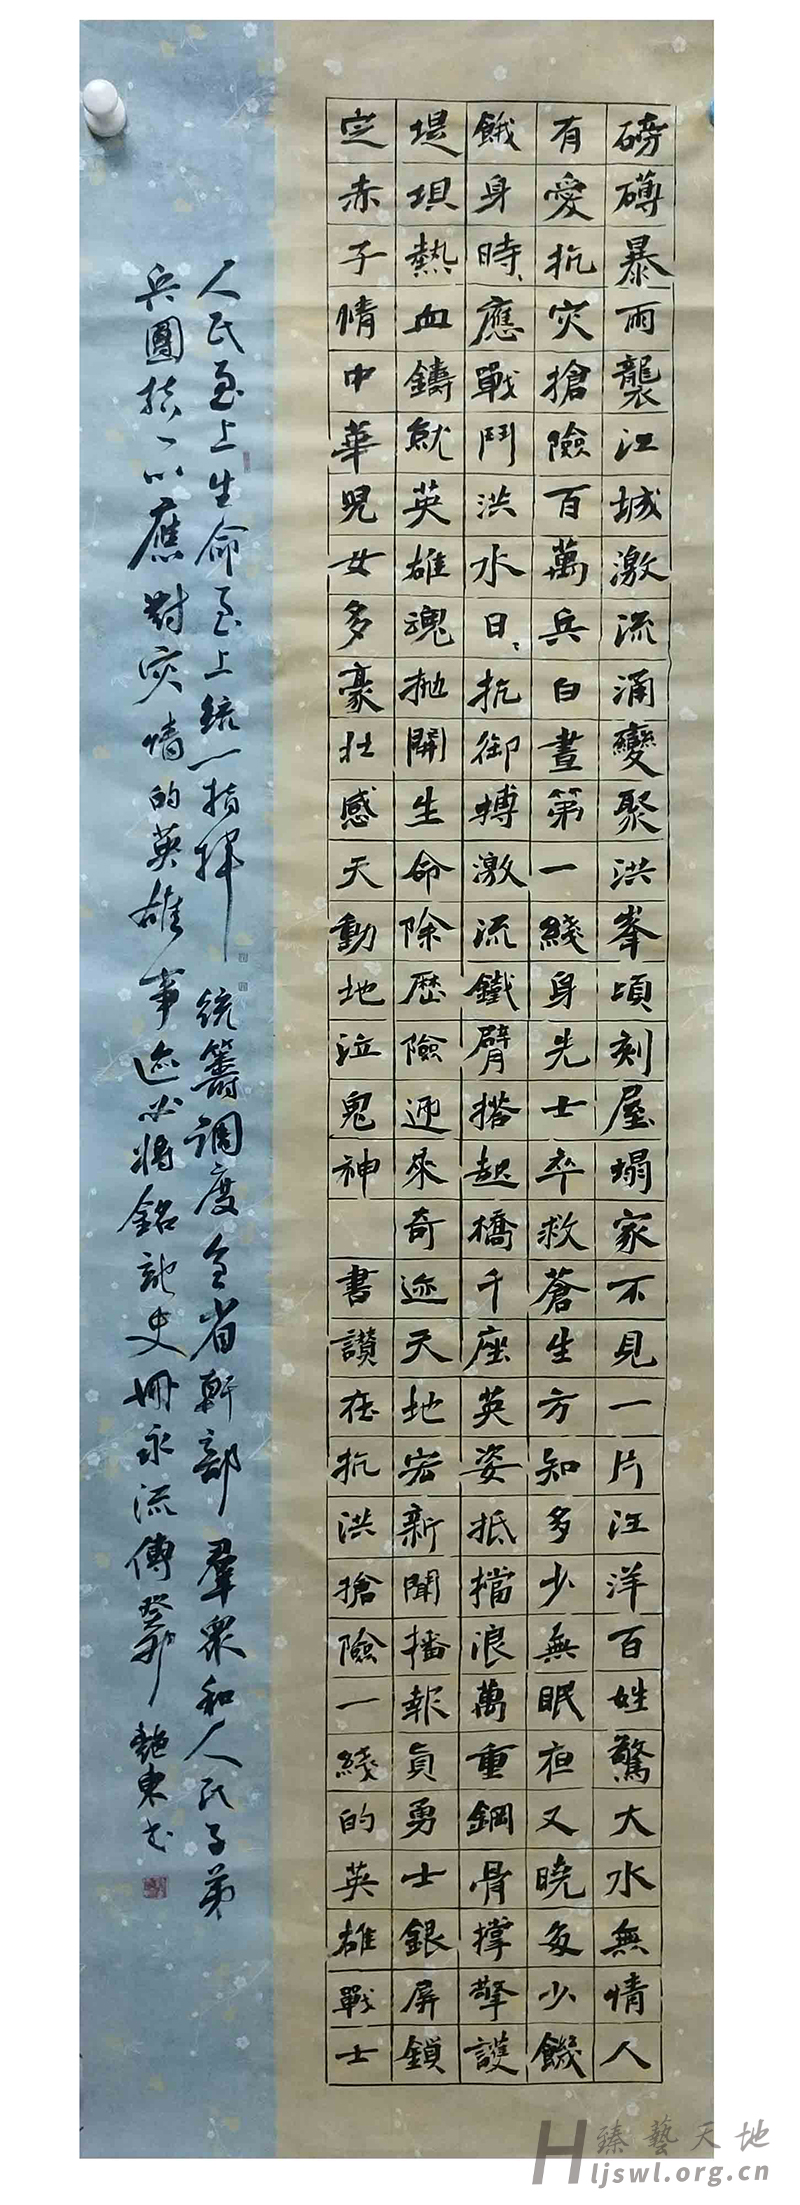 磅礴暴雨襲江城激流涌變聚洪峯頃刻屋塌家不見一片汪洋百姓驚大水無情人
有愛抗灾搶險百萬兵白晝第一綫身先士卒救蒼生方知多少無眠夜又曉多少饑
餓身時應戰鬥洪水日抗御搏激流鐵臂搭起橋千座英姿抵擋浪萬重鋼骨撑擎護
堤垻熱血鑄就英雄魂抛開生命除歷險迎來奇迹天地宏新聞播報員勇士銀屏鎖
定赤子情中華児女多豪壮感天動地泣鬼神 書讃在抗洪搶險一綫的英雄戰士
人民至上生命至上統一指揮 統籌調度全省幹部 羣衆和人民子弟
兵團結一心應對灾情的英雄事迹必将銘記史冊永流傳癸卯 艷東書
臻藝天地
Hljswl.org.cn